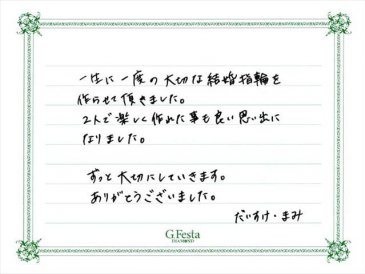 一生に一度の大切な結婚指輪を
作らせて頂きました。
2人で楽しく作れた事も良い思い出に
なりました。
ずっと大切にしていきます。
ありがとうございました。
だいすけ・まみ
G.Festa
DIAMOND